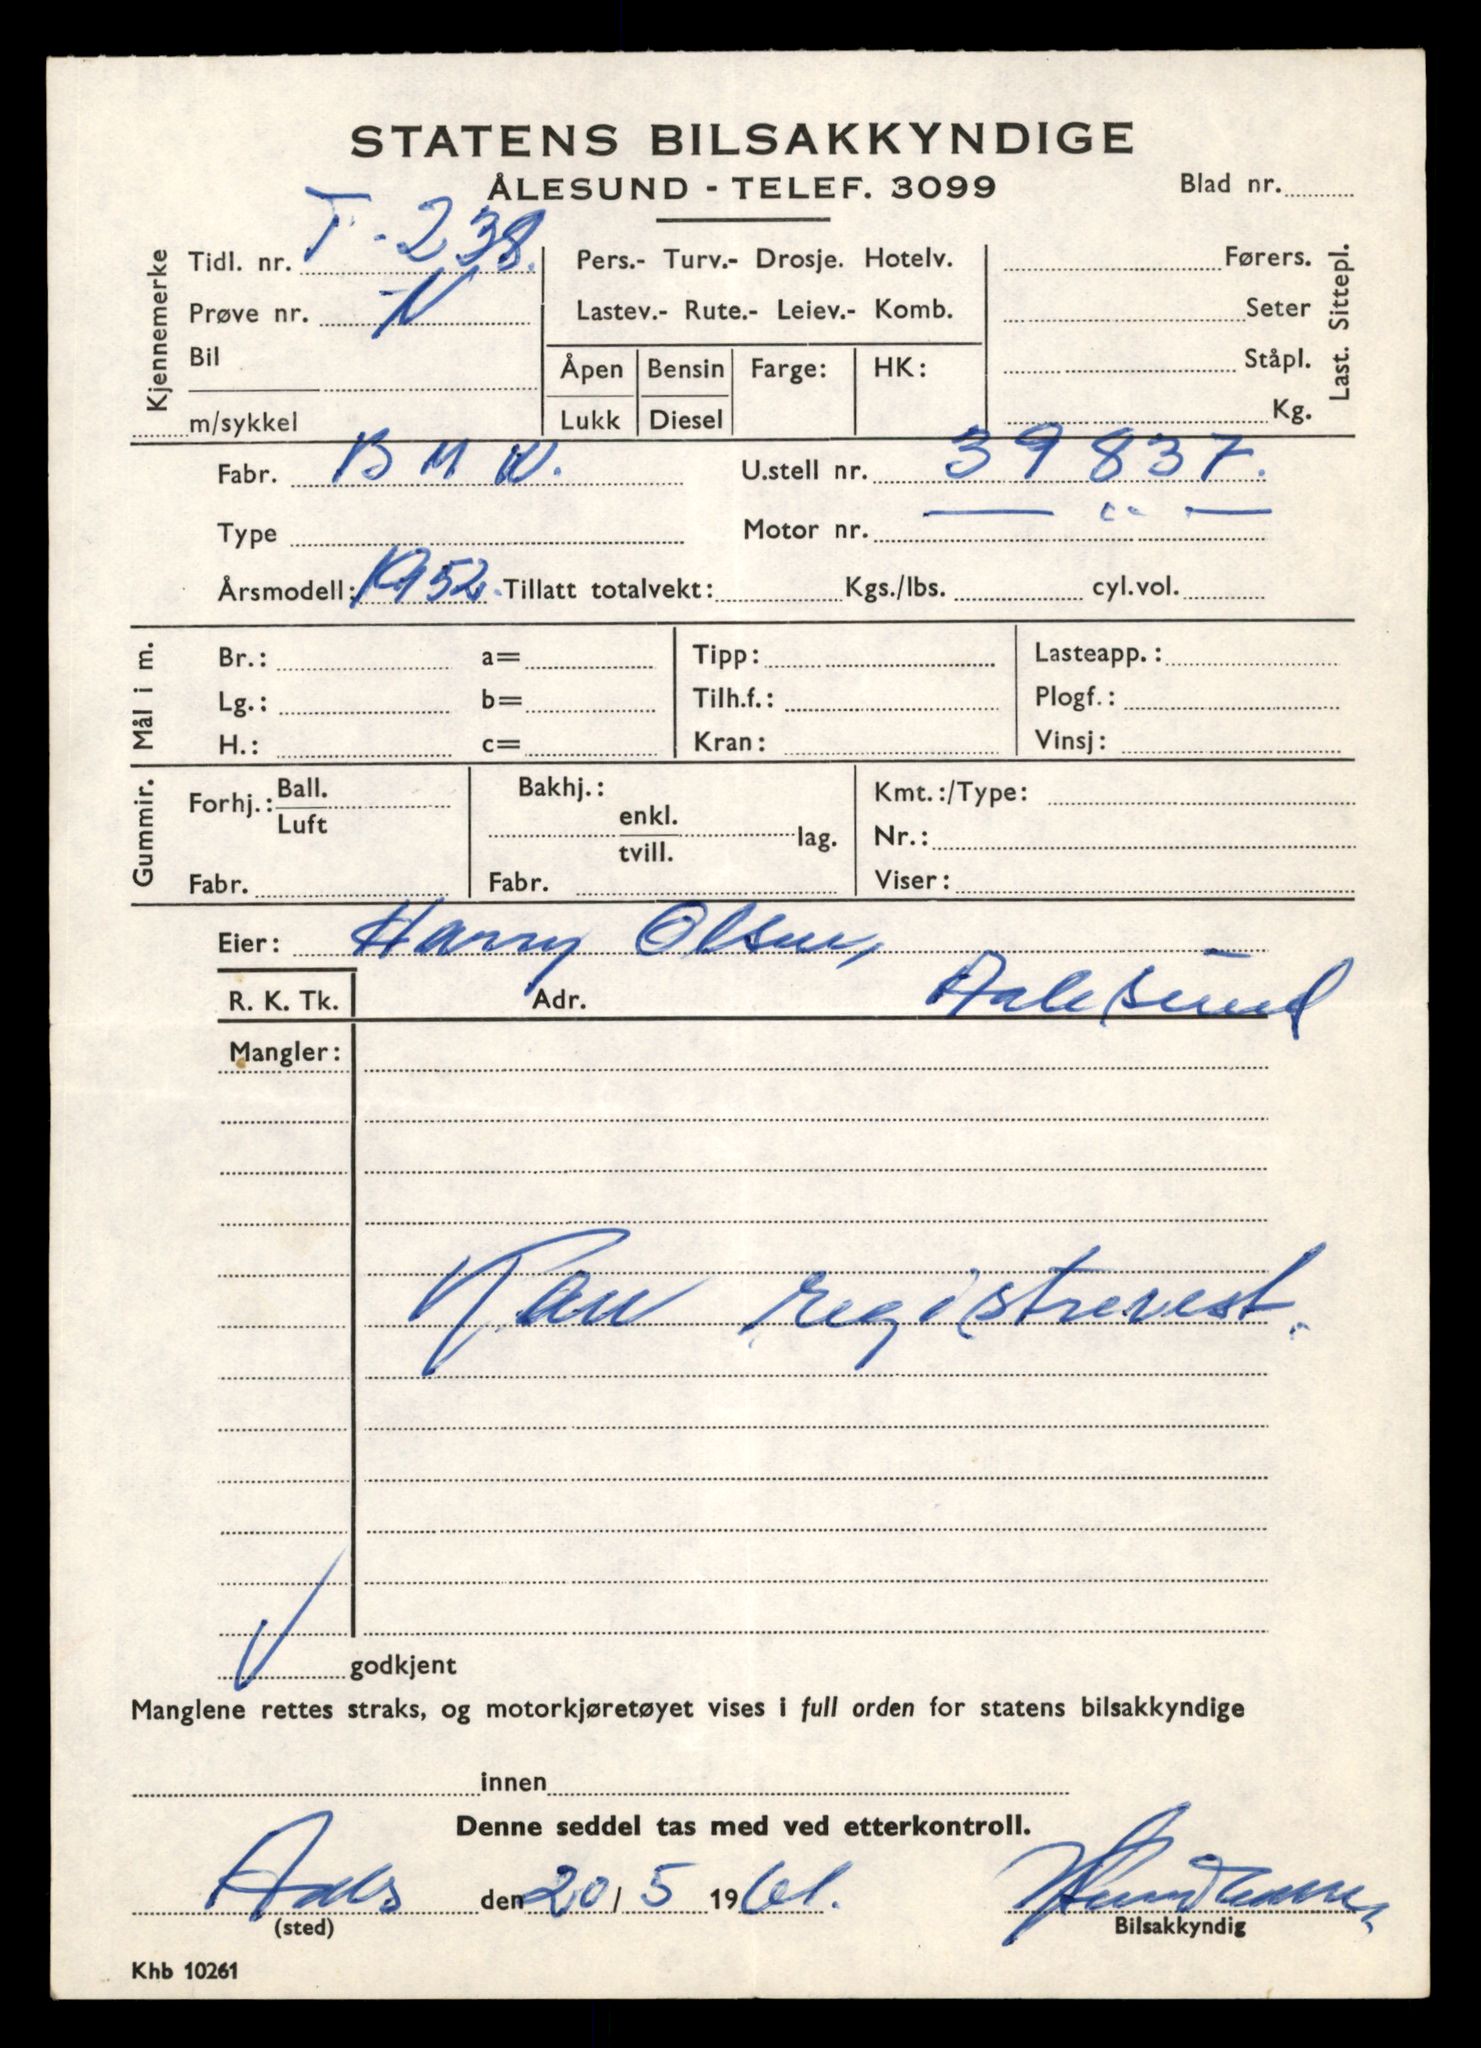 STATENS BILSAKKYNDIGE
ÅLESUND - TELEF. 3099
Blad nr.
Kjennemerke
Tidl. nr. T-238.
Prøve nr. N
Bil
m/sykkel
Pers.- Turv.- Drosje. Hotelv.
Lastev.- Rute.- Leiev.- Komb.
Åpen Bensin Farge: HK:
Lukk Diesel
Førers.
Seter
Ståpl.
Kg.
Last. Sittepl.
Fabr. BMW. U.stell nr. 39837.
Type Motor nr. — " —
Årsmodell: 1952. Tillatt totalvekt: Kgs./lbs. cyl.vol.
Mål i m.
Br.: a= Tipp: Lasteapp.:
Lg.: b= Tilh.f.: Plogf.:
H.: c= Kran: Vinsj:
Gummir.
Forhj.: Ball.
Luft
Fabr.
Bakhj.:
enkl.
tvill. lag.
Fabr.
Kmt.:/Type:
Nr.:
Viser:
Eier: Harry Olsen,
R. K. Tk. Adr. Aalesund
Mangler:
Kan registreres.
godkjent
Manglene rettes straks, og motorkjøretøyet vises i full orden for statens bilsakkyndige
innen
Denne seddel tas med ved etterkontroll.
Aales den 20/5 1961.
(sted) Bilsakkyndig
Khb 10261